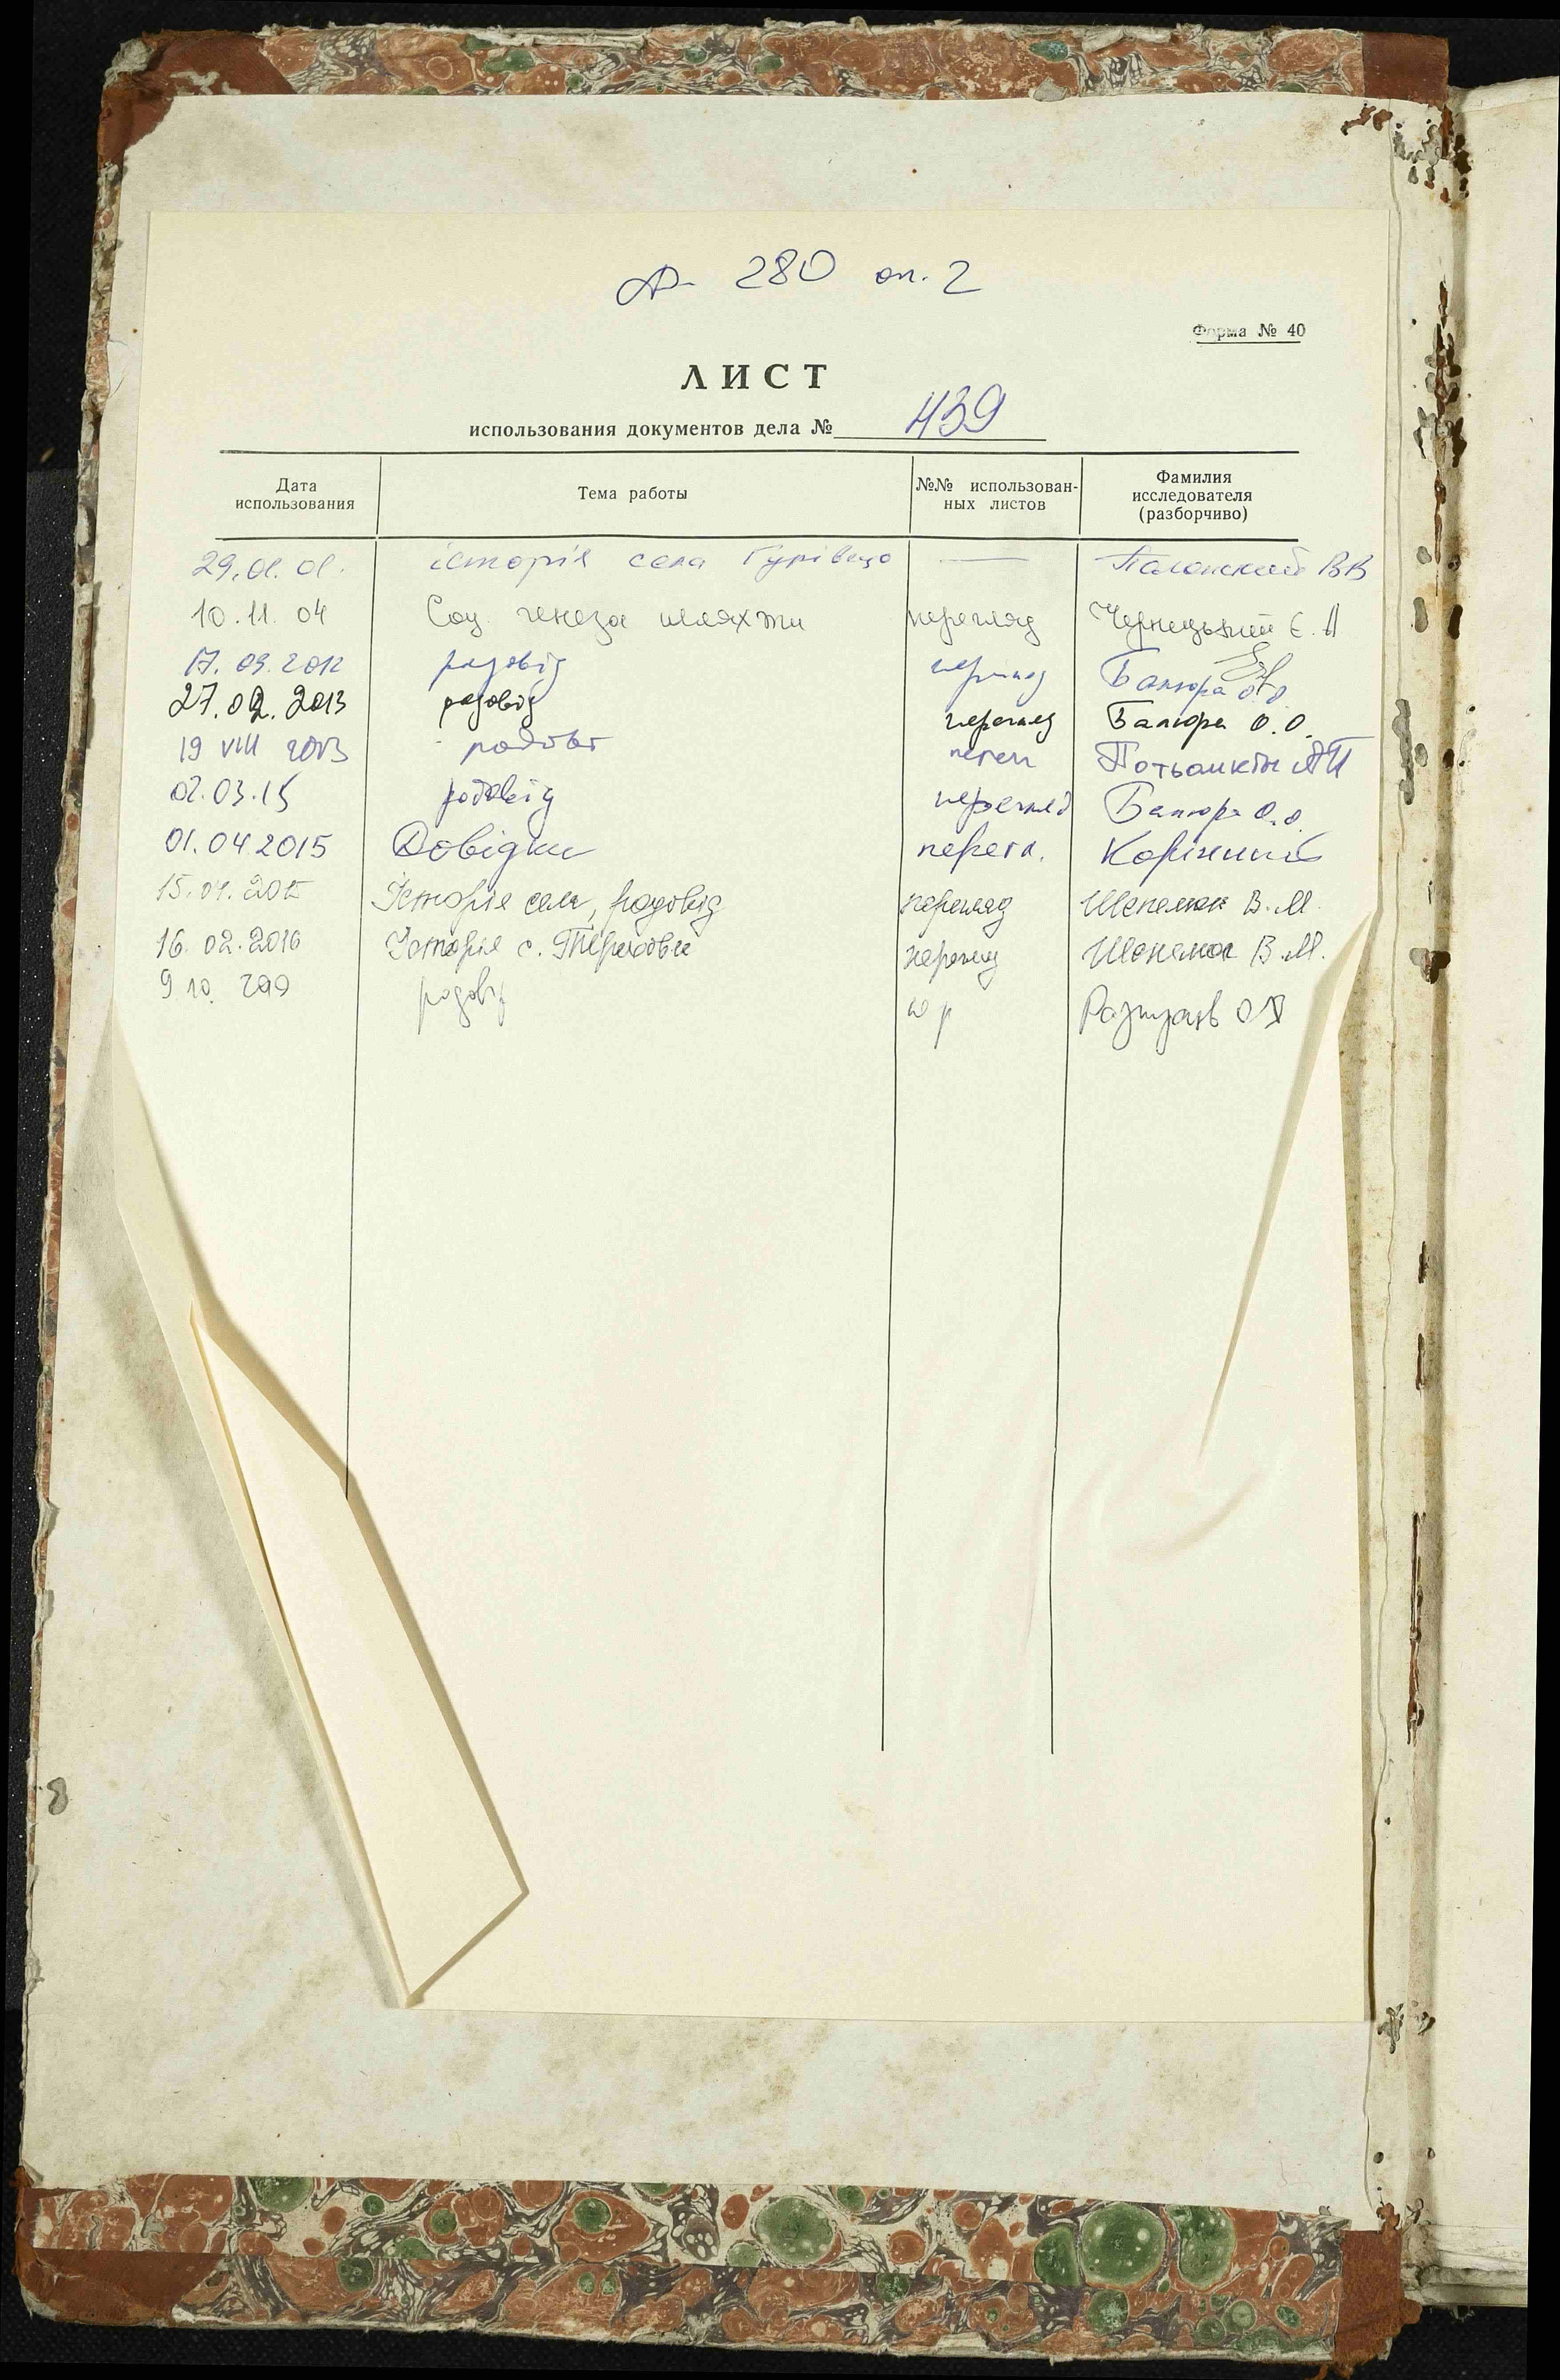 Ф- 280 оп. 2
Форма № 40
ЛИСТ
использования документов дела № 439
Дата использования Тема работы №№ использован-ных листов Фамилия исследователя (разборчиво)
29.01.01. історія села Гурівець — ВВ
10.11.04 Соц. генеза шляхти перегляд Чернецький Є. А
17.09.2012 родовід перегляд Банюра О.О.
27.02.2013 родовід перегляд Банюра О.О.
19 VIII 2013 родовід перегл Потьомкін АП
02.03.15 родовід перегляд Банюра О.О.
01.04 2015 Довідки перегл.
15.04.2015 Історія села, родовід перегляд Шепелюк В.М.
16.02.2016 Історія с. перегляд Шепелюк В.М.
9 10. родовід
8